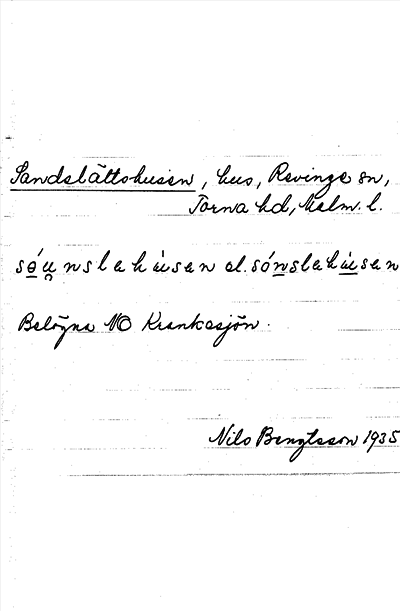 Sandslättshusen, hus, Revinge sn,
Torna hd, Malm. l.
sóu̯nslahùsen el. sónslahùsen
Belägna NO Krankesjön.
Nils Bengtsson 1935